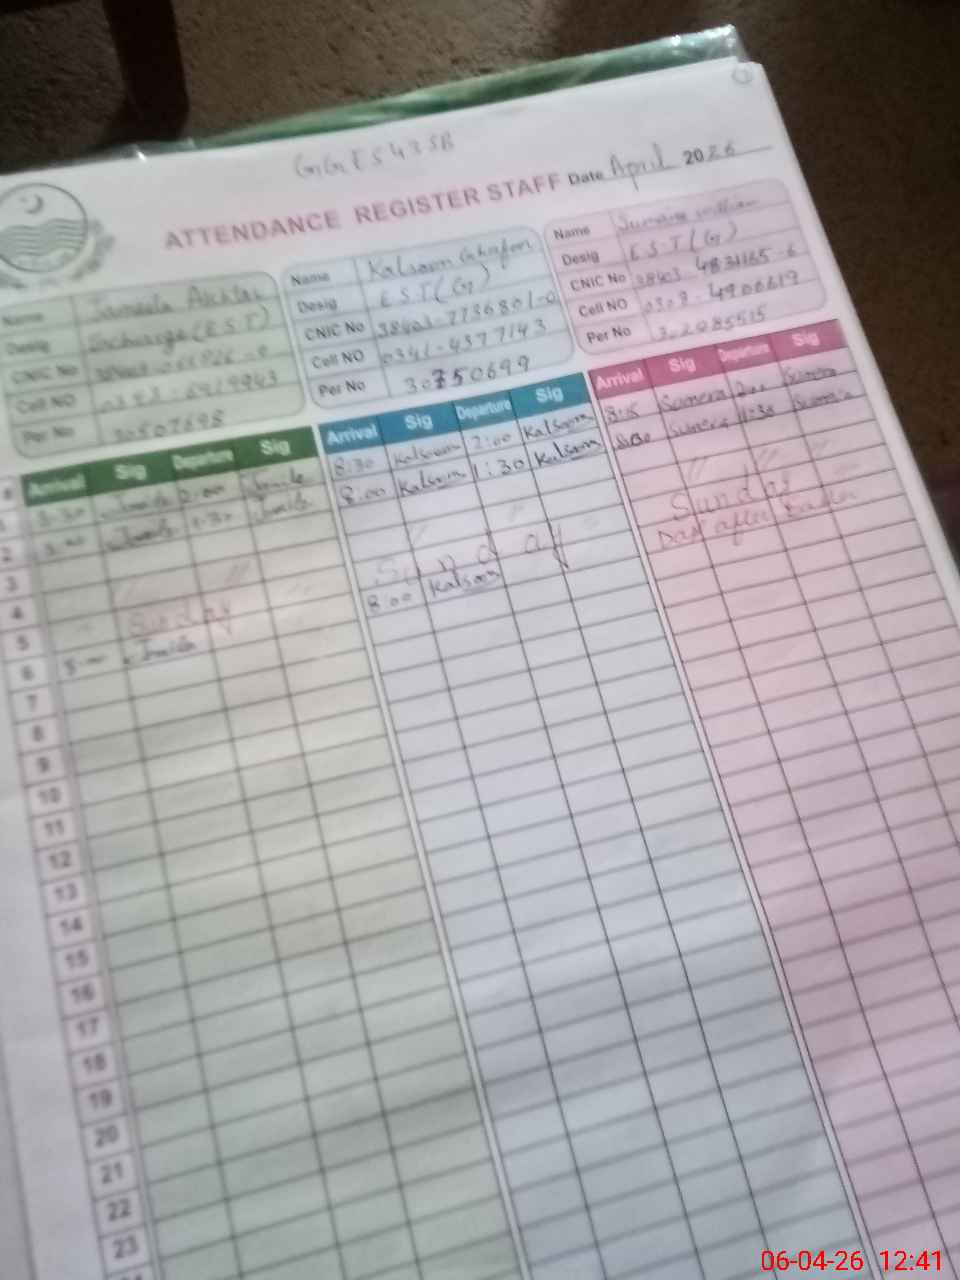 GGES 43 SB
ATTENDANCE REGISTER STAFF Date April 2026
Name Jameela Akhtar
Desig Incharge (E.S.T)
CNIC No
Cell NO
Per No 30507698
Name Kalsoom Ghafoor
Desig E.S.T (G)
CNIC No 38403-7736801-0
Cell NO 0341-4377143
Per No 30750699
Name
Desig E.S.T (G)
CNIC No 38403 4831165-6
Cell NO 0309-4906619
Per No
Arrival Sig Departure Sig Arrival Sig Departure Sig Arrival Sig Departure Sig
1 8:30 Jamila 2:00 Jamila 8:30 Kalsoom 2:00 Kalsoom 8:15 Sumera 2:00 Sumera
2 8:00 Jamila 1:30 Jamila 8:00 Kalsoom 1:30 Kalsoom Sumera Sumera
3
4
5 Sunday Sunday Sunday
6 8:00 Jamila 8:00 Kalsoom Day after
7
8
9
10
11
12
13
14
15
16
17
18
19
20
21
22
23
06-04-26 12:41